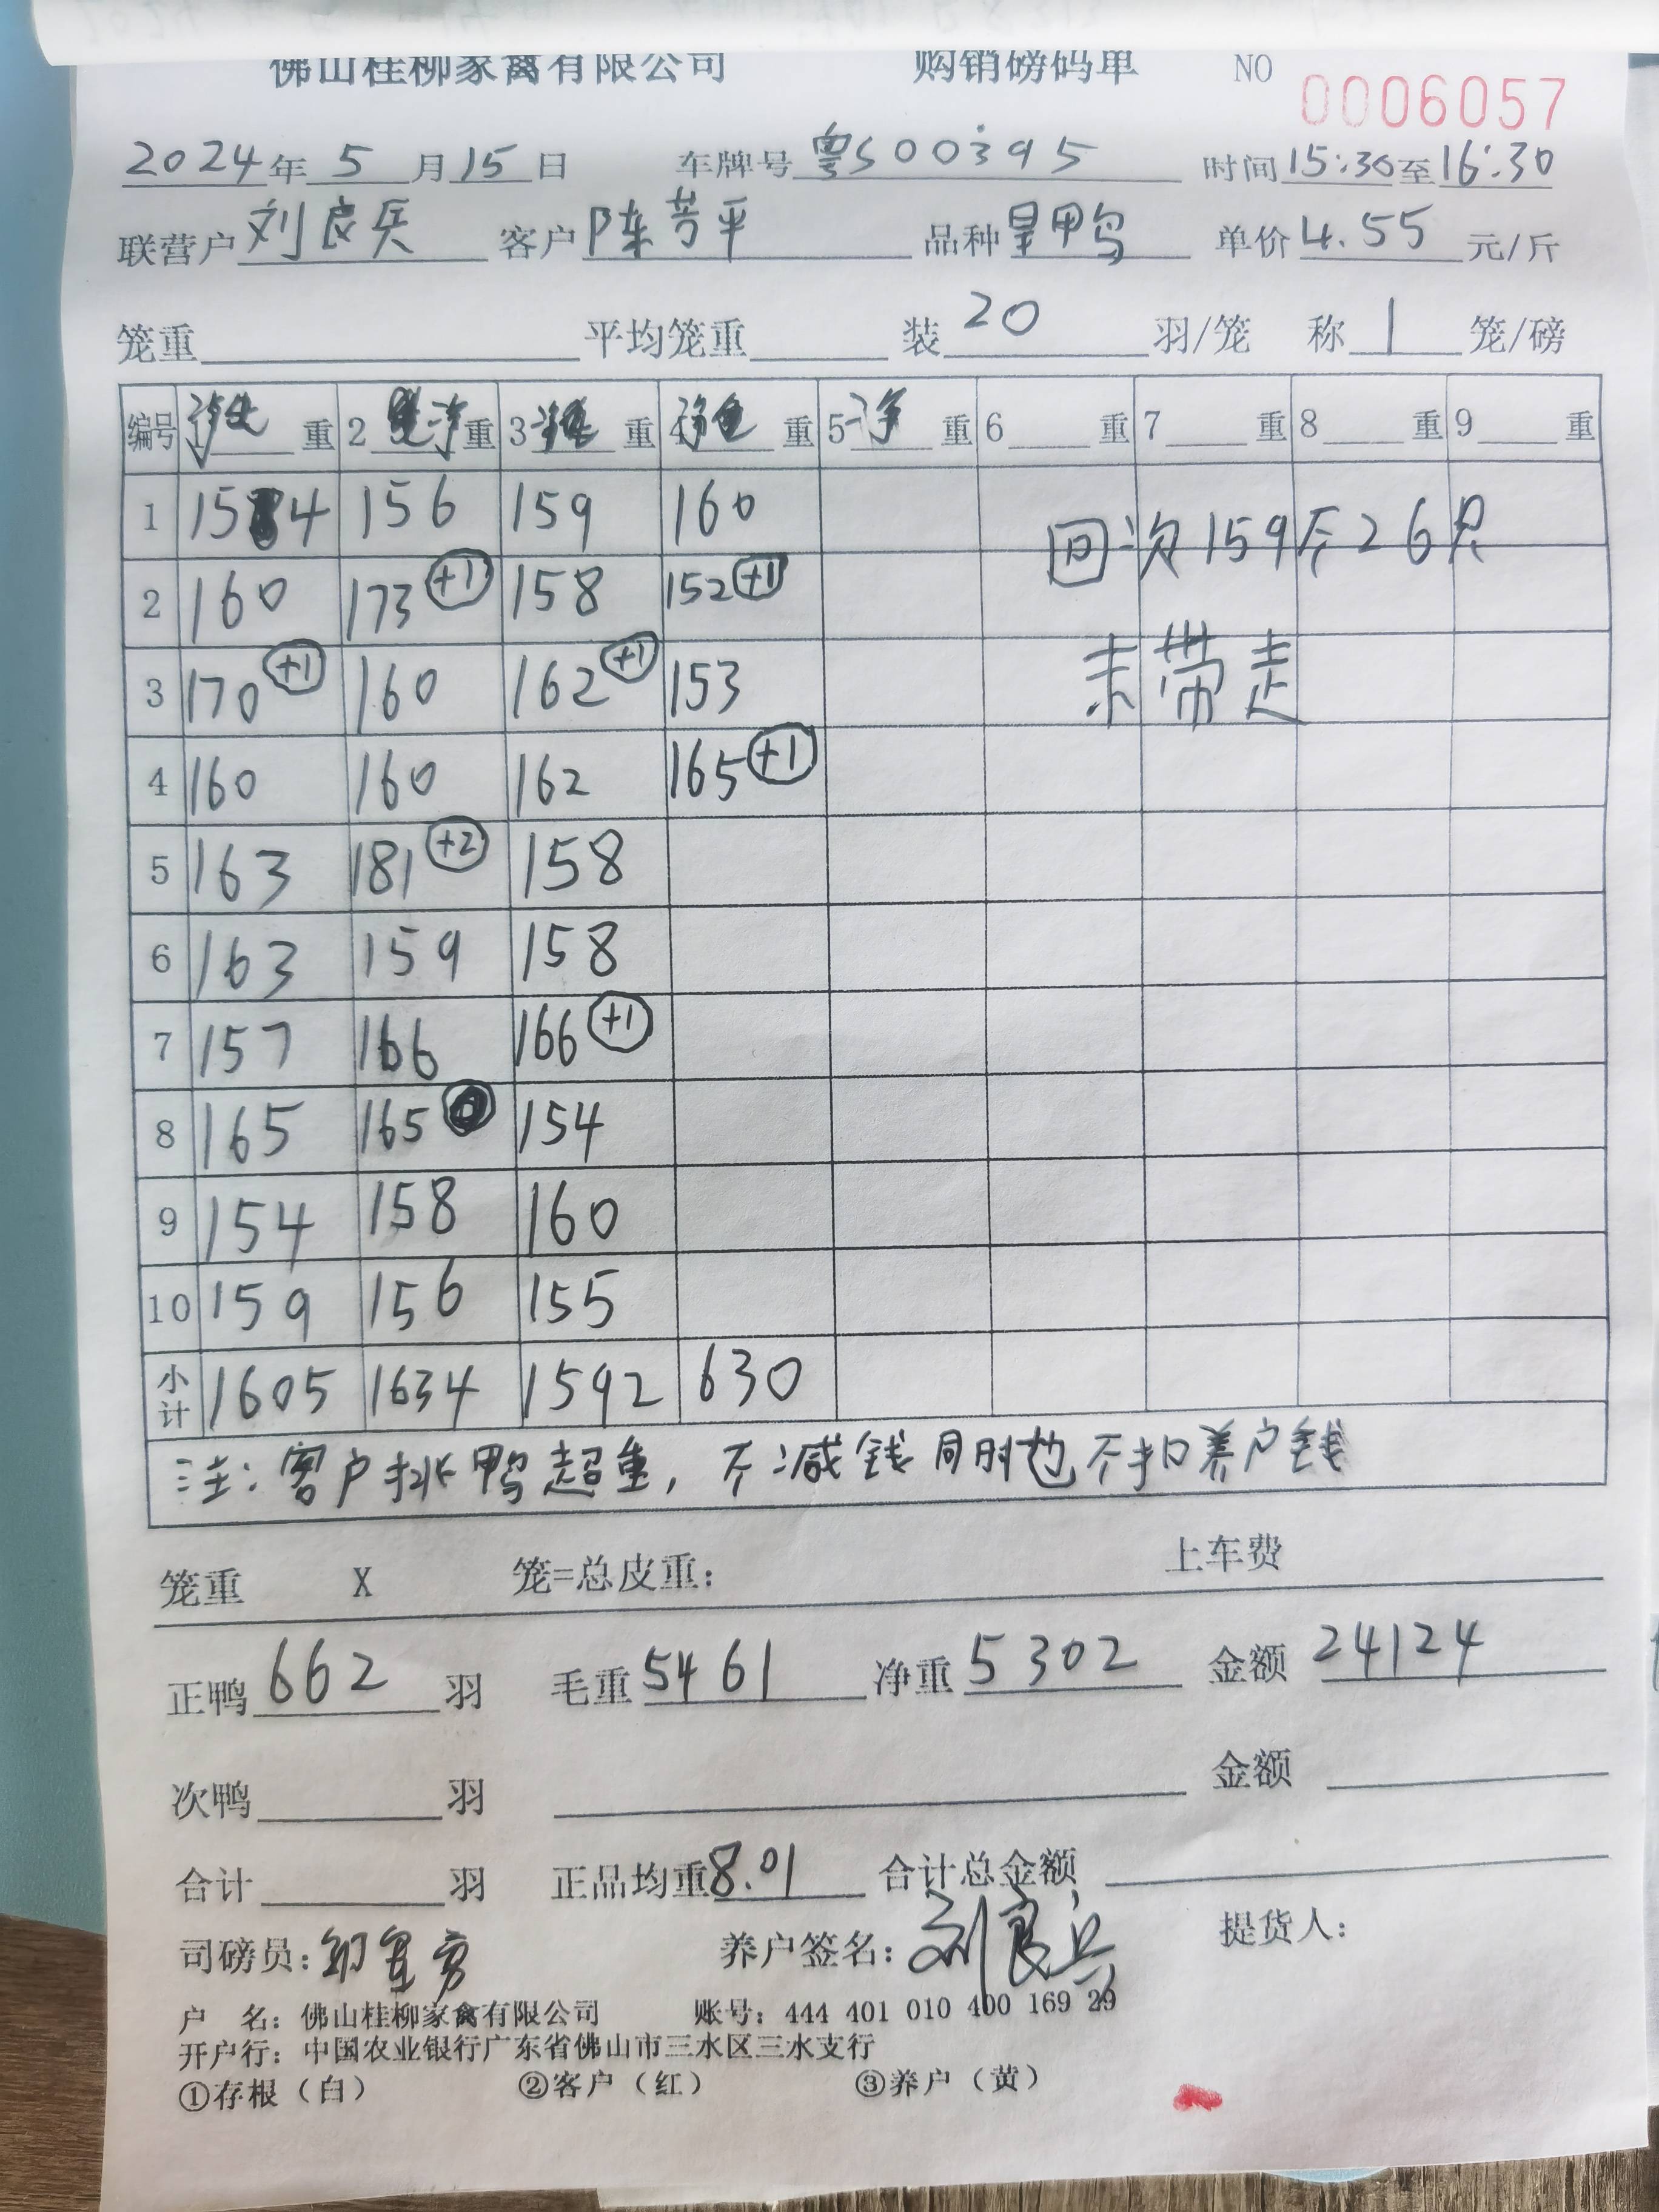 佛山桂柳家禽有限公司 购销磅码单 NO 0006057
2024年 5 月 15 日 车牌号 粤S00395 时间 15:30 至 16:30
联营户 刘良兵 客户 陈芳平 品种 旱鸭 单价 4.55 元/斤
笼重 平均笼重 装 20 羽/笼 称 1 笼/磅
编号 重 2 净 重 3 重 4 重 5 净 重 6 重 7 重 8 重 9 重
1 154 156 159 160
回次159斤26只
2 160 173 +1 158 152 +1
3 170 +1 160 162 +1 153
未带走
4 160 160 162 165 +1
5 163 181 +2 158
6 163 159 158
7 157 166 166 +1
8 165 165 154
9 154 158 160
10 159 156 155
小计 1605 1634 1592 630
注:客户挑鸭超重,不减钱同时也不扣养户钱
笼重 X 笼=总皮重: 上车费
正鸭 662 羽 毛重 5461 净重 5302 金额 24124
次鸭 羽 金额
合计 羽 正品均重 8.01 合计总金额
司磅员: 养户签名:刘良兵 提货人:
户 名:佛山桂柳家禽有限公司 账号:444 401 010 400 169 29
开户行:中国农业银行广东省佛山市三水区三水支行
①存根(白) ②客户(红) ③养户(黄)